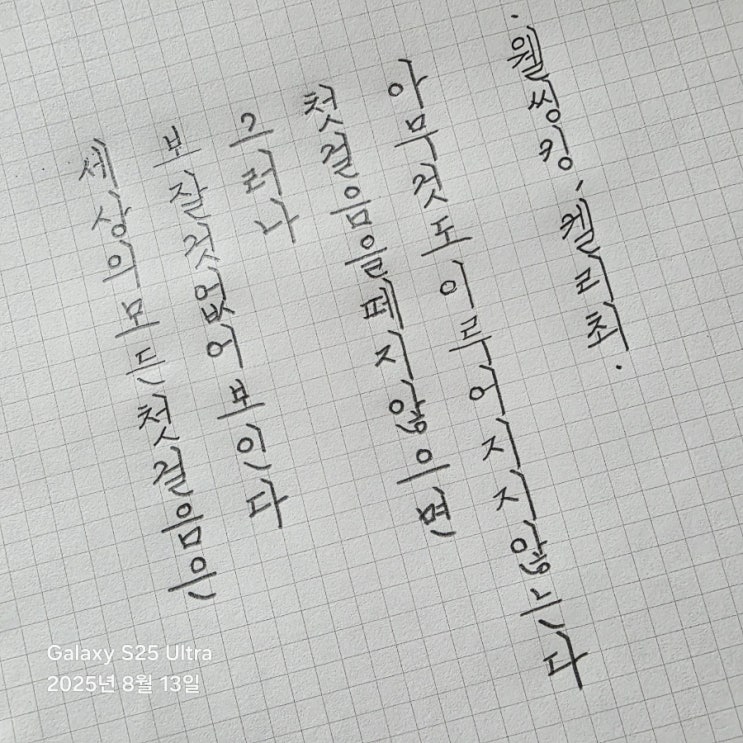 세상의모든첫걸음은
보잘것없어보인다
그러나
첫걸음을떼지않으면
아무것도이루어지지않는다
·웰씽킹, 켈리최·
Galaxy S25 Ultra
2025년 8월 13일